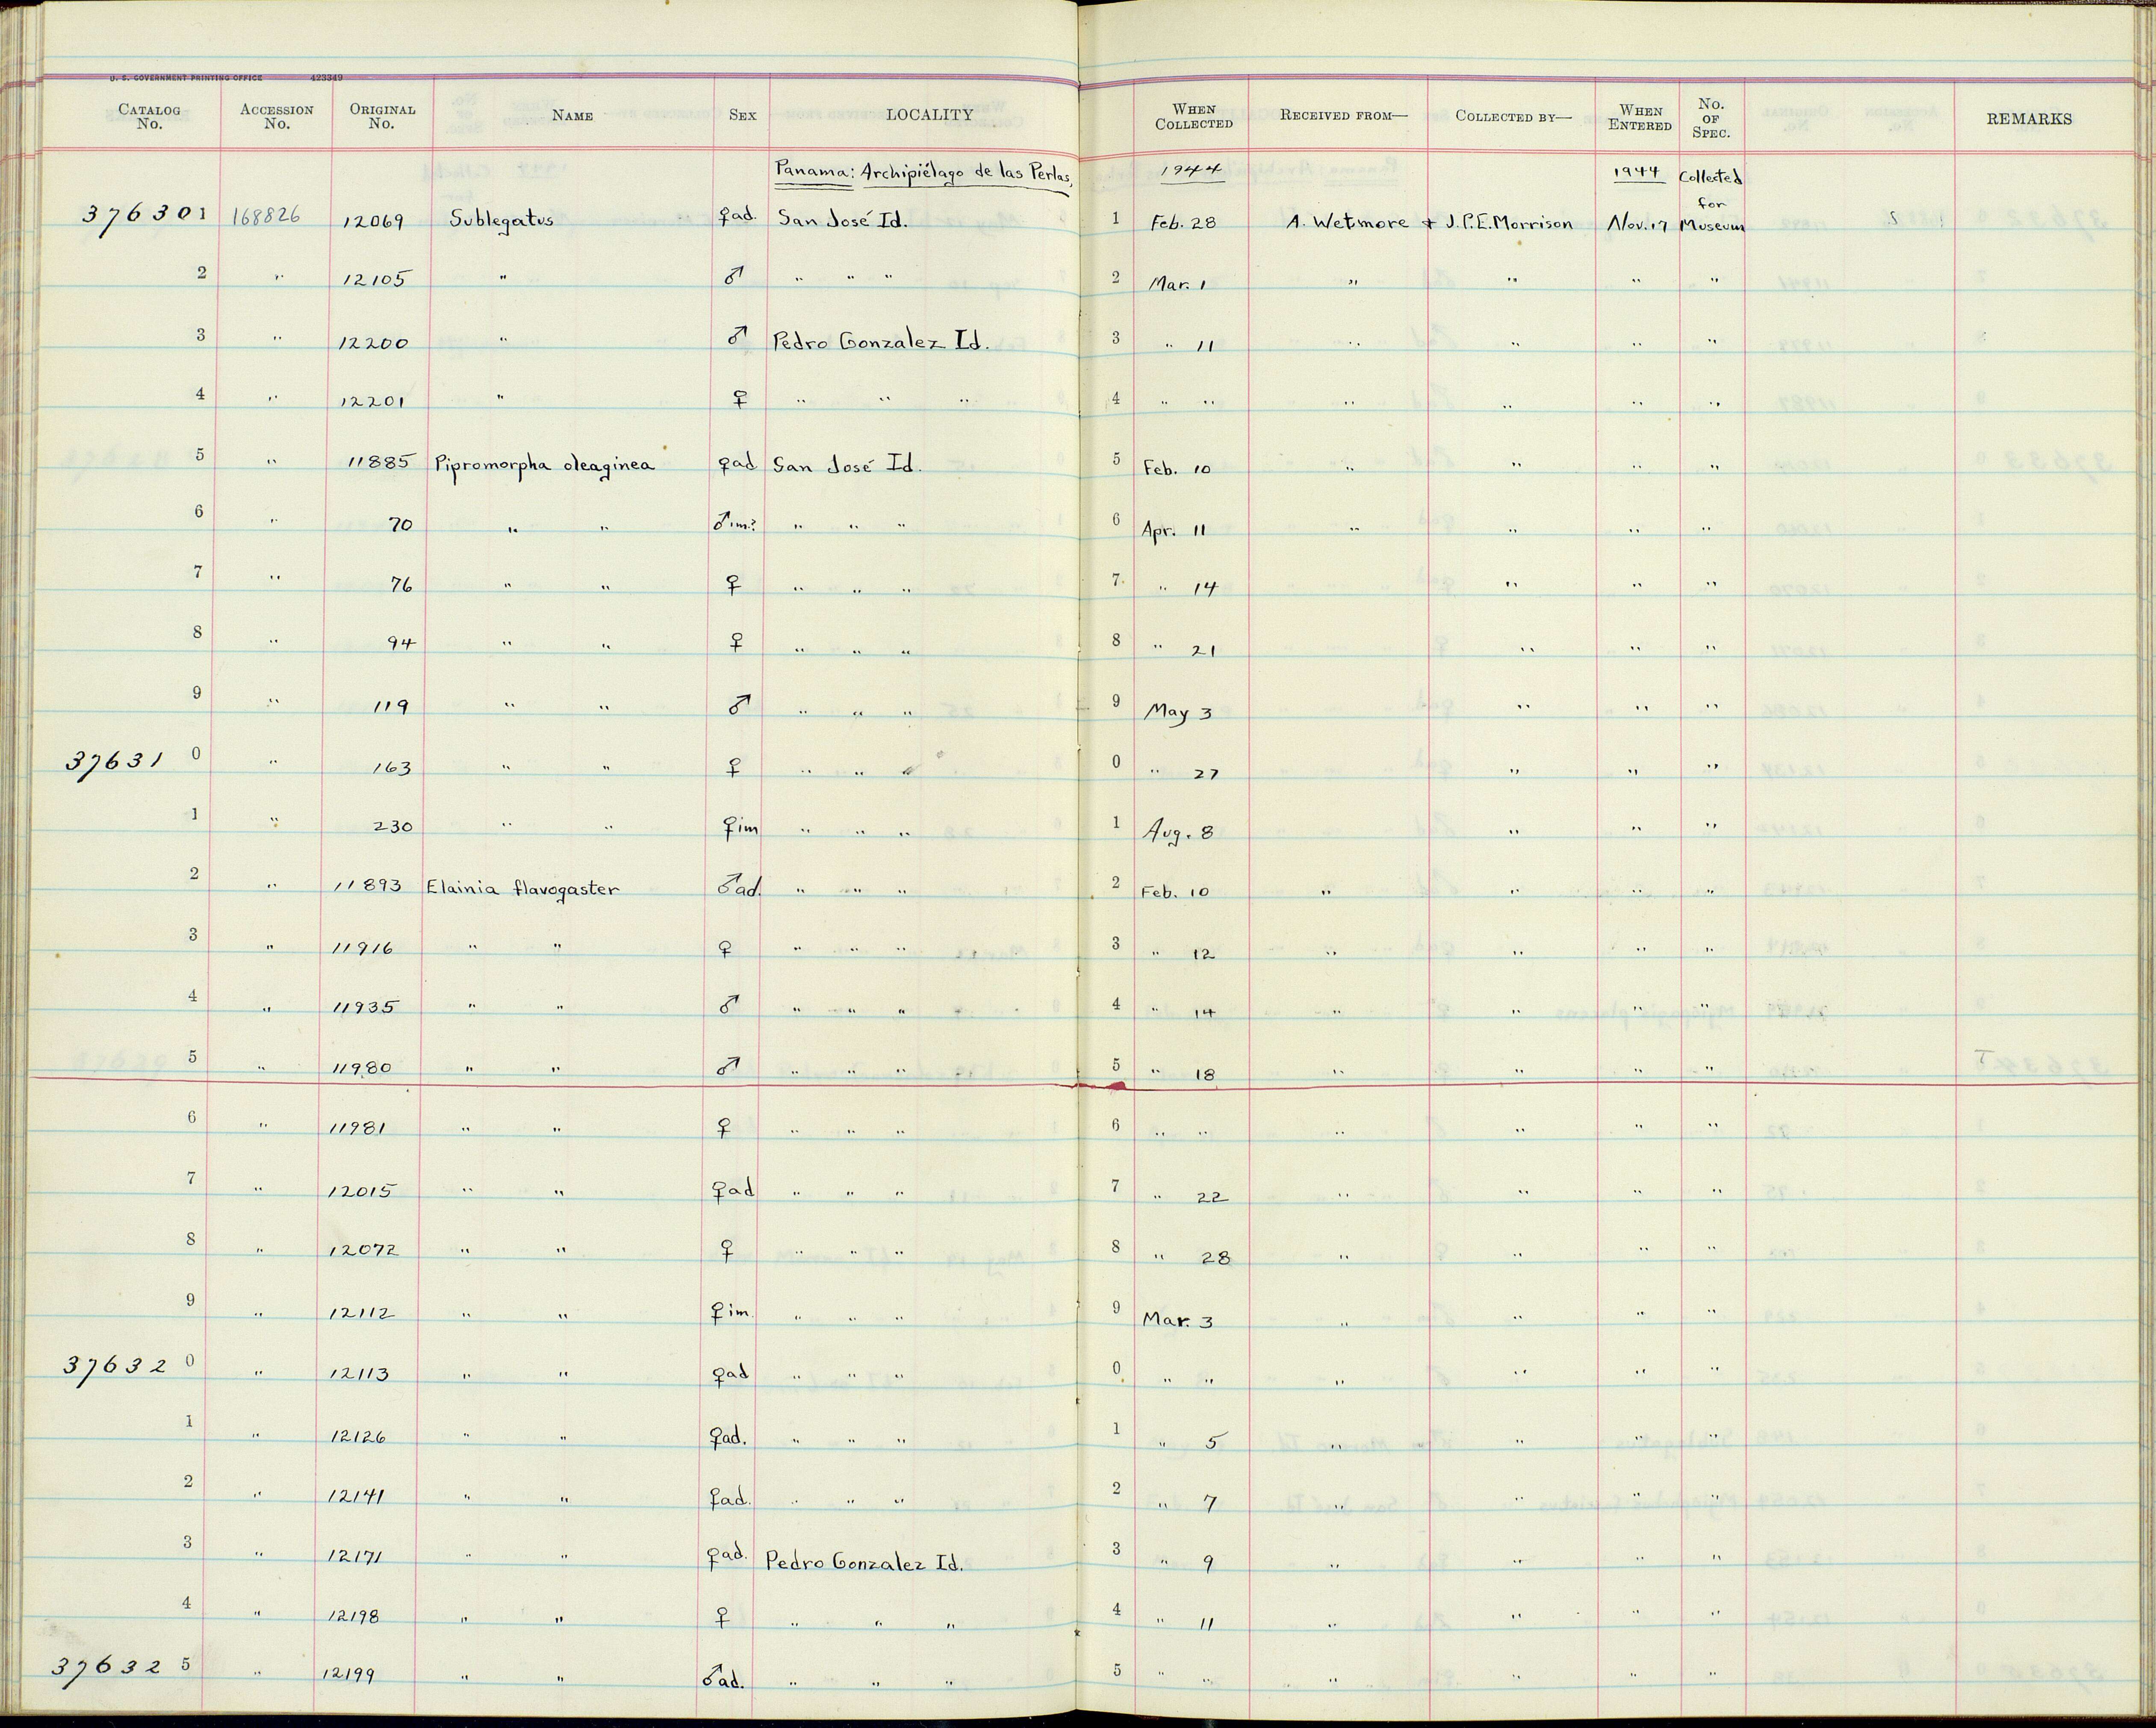 U. S. GOVERNMENT PRINTING OFFICE 423349
CATALOG No. ACCESSION No. ORIGINAL No. NAME SEX LOCALITY WHEN COLLECTED RECEIVED FROM— COLLECTED BY— WHEN ENTERED No. OF SPEC. REMARKS
Panama: Archipiélago de las Perlas, 1944 1944 Collected for
376301 168826 12069 Sublegatus ♀ad. San José Id. 1 Feb. 28 A. Wetmore & J.P.E. Morrison Nov. 17 Museum
2 " 12105 " ♂ " " " 2 Mar. 1 " " " "
3 " 12200 " ♂ Pedro Gonzalez Id. 3 " 11 " " " "
4 " 12201 " ♀ " " " 4 " " " " " "
5 " 11885 Pipromorpha oleaginea ♀ad San José Id. 5 Feb. 10 " " " "
6 " 70 " " ♂im? " " " 6 Apr. 11 " " " "
7 " 76 " " ♀ " " " 7 " 14 " " "
8 " 94 " " ♀ " " " 8 " 21 " " "
9 " 119 " " ♂ " " " 9 May 3 " " "
376310 " 163 " " ♀ " " " 0 " 27 " " "
1 " 230 " " ♀im " " " 1 Aug. 8 " " "
2 " 11893 Elainia flavogaster ♂ad. " " " 2 Feb. 10 " " " "
3 " 11916 " " ♀ " " " 3 " 12 " " " "
4 " 11935 " " ♂ " " " 4 " 14 " " " "
5 " 11980 " " ♂ " " " 5 " 18 " " " "
6 " 11981 " " ♀ " " " 6 " " " " " "
7 " 12015 " " ♀ad " " " 7 " 22 " " " "
8 " 12072 " " ♀ " " " 8 " 28 " " " "
9 " 12112 " " ♀im. " " " 9 Mar. 3 " " " "
376320 " 12113 " " ♀ad " " " 0 " " " " " "
1 " 12126 " " ♀ad. " " " 1 " 5 " " " "
2 " 12141 " " ♀ad. " " " 2 " 7 " " " "
3 " 12171 " " ♀ad. Pedro Gonzalez Id. 3 " 9 " " " "
4 " 12198 " " ♀ " " " 4 " 11 " " " "
376325 " 12199 " " ♂ad. " " " 5 " " " " " "